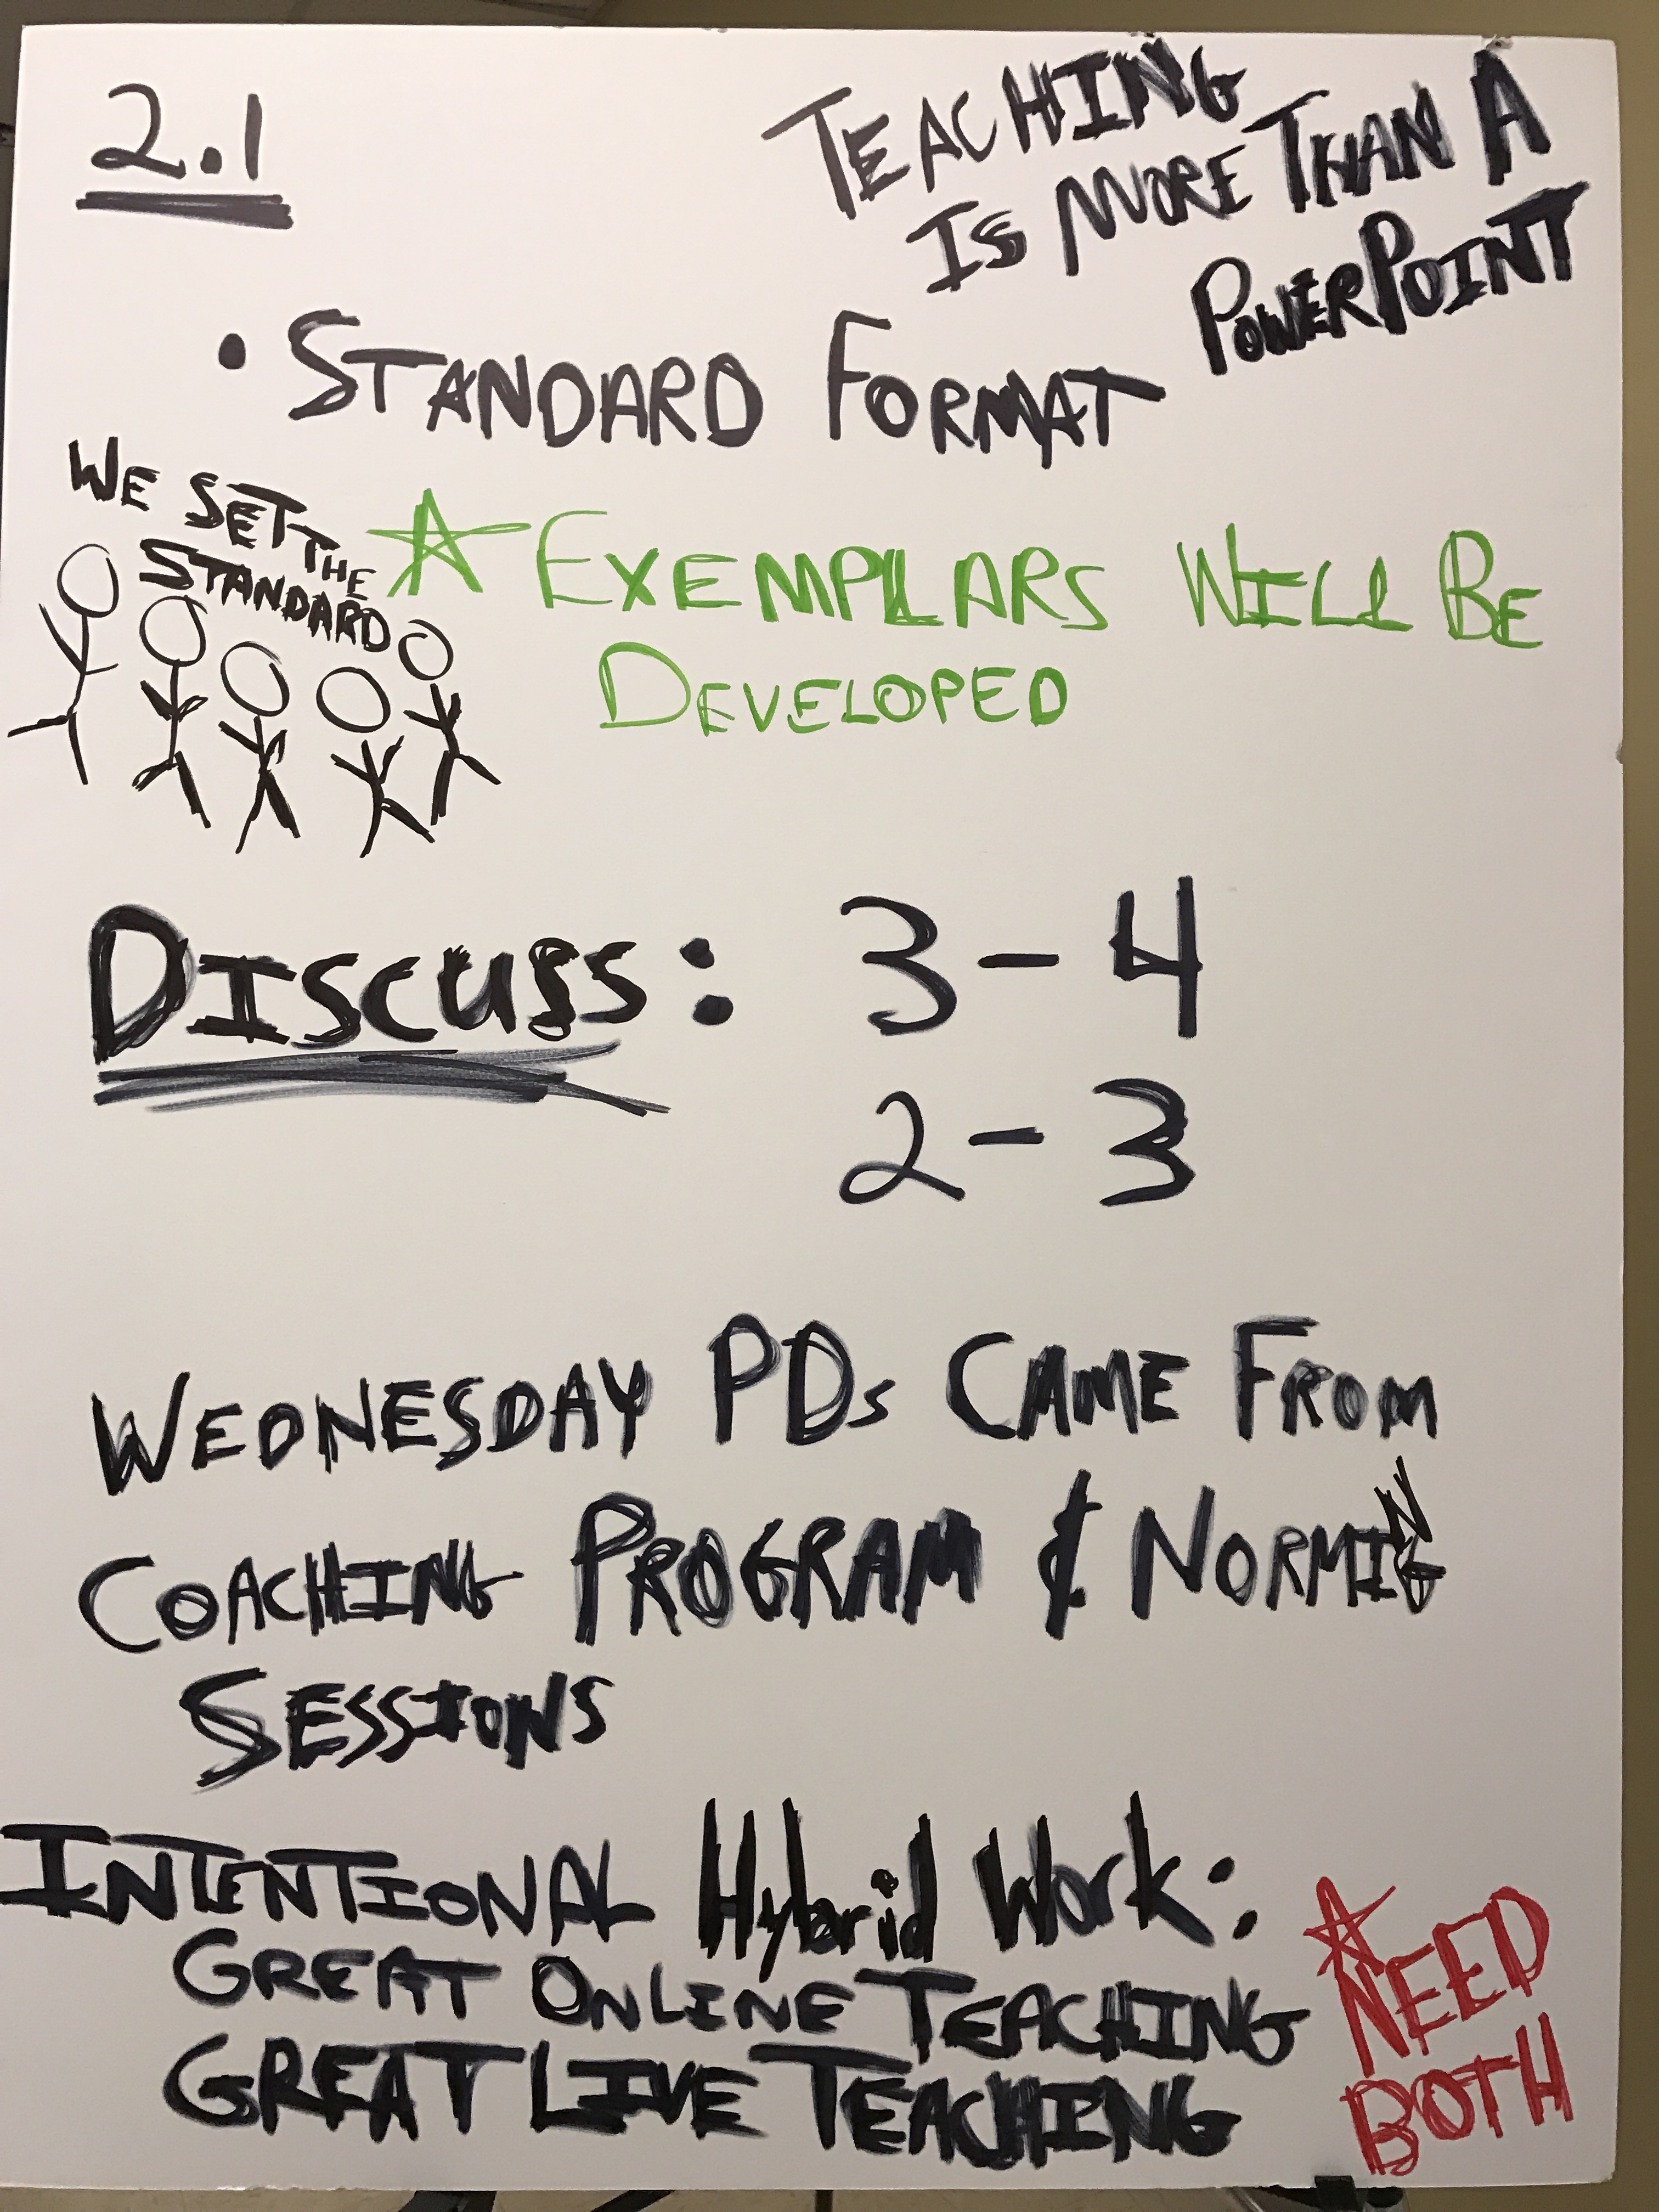 2.1
TEACHING
IS MORE THAN A
POWERPOINT
• STANDARD FORMAT
WE SET THE
STANDARD
☆ EXEMPLARS WILL BE
DEVELOPED
DISCUSS: 3-4
2-3
WEDNESDAY PDs CAME FROM
COACHING PROGRAM & NORMING
SESSIONS
INTENTIONAL Hybrid Work:
GREAT ONLINE TEACHING
GREAT LIVE TEACHING
☆ NEED
BOTH